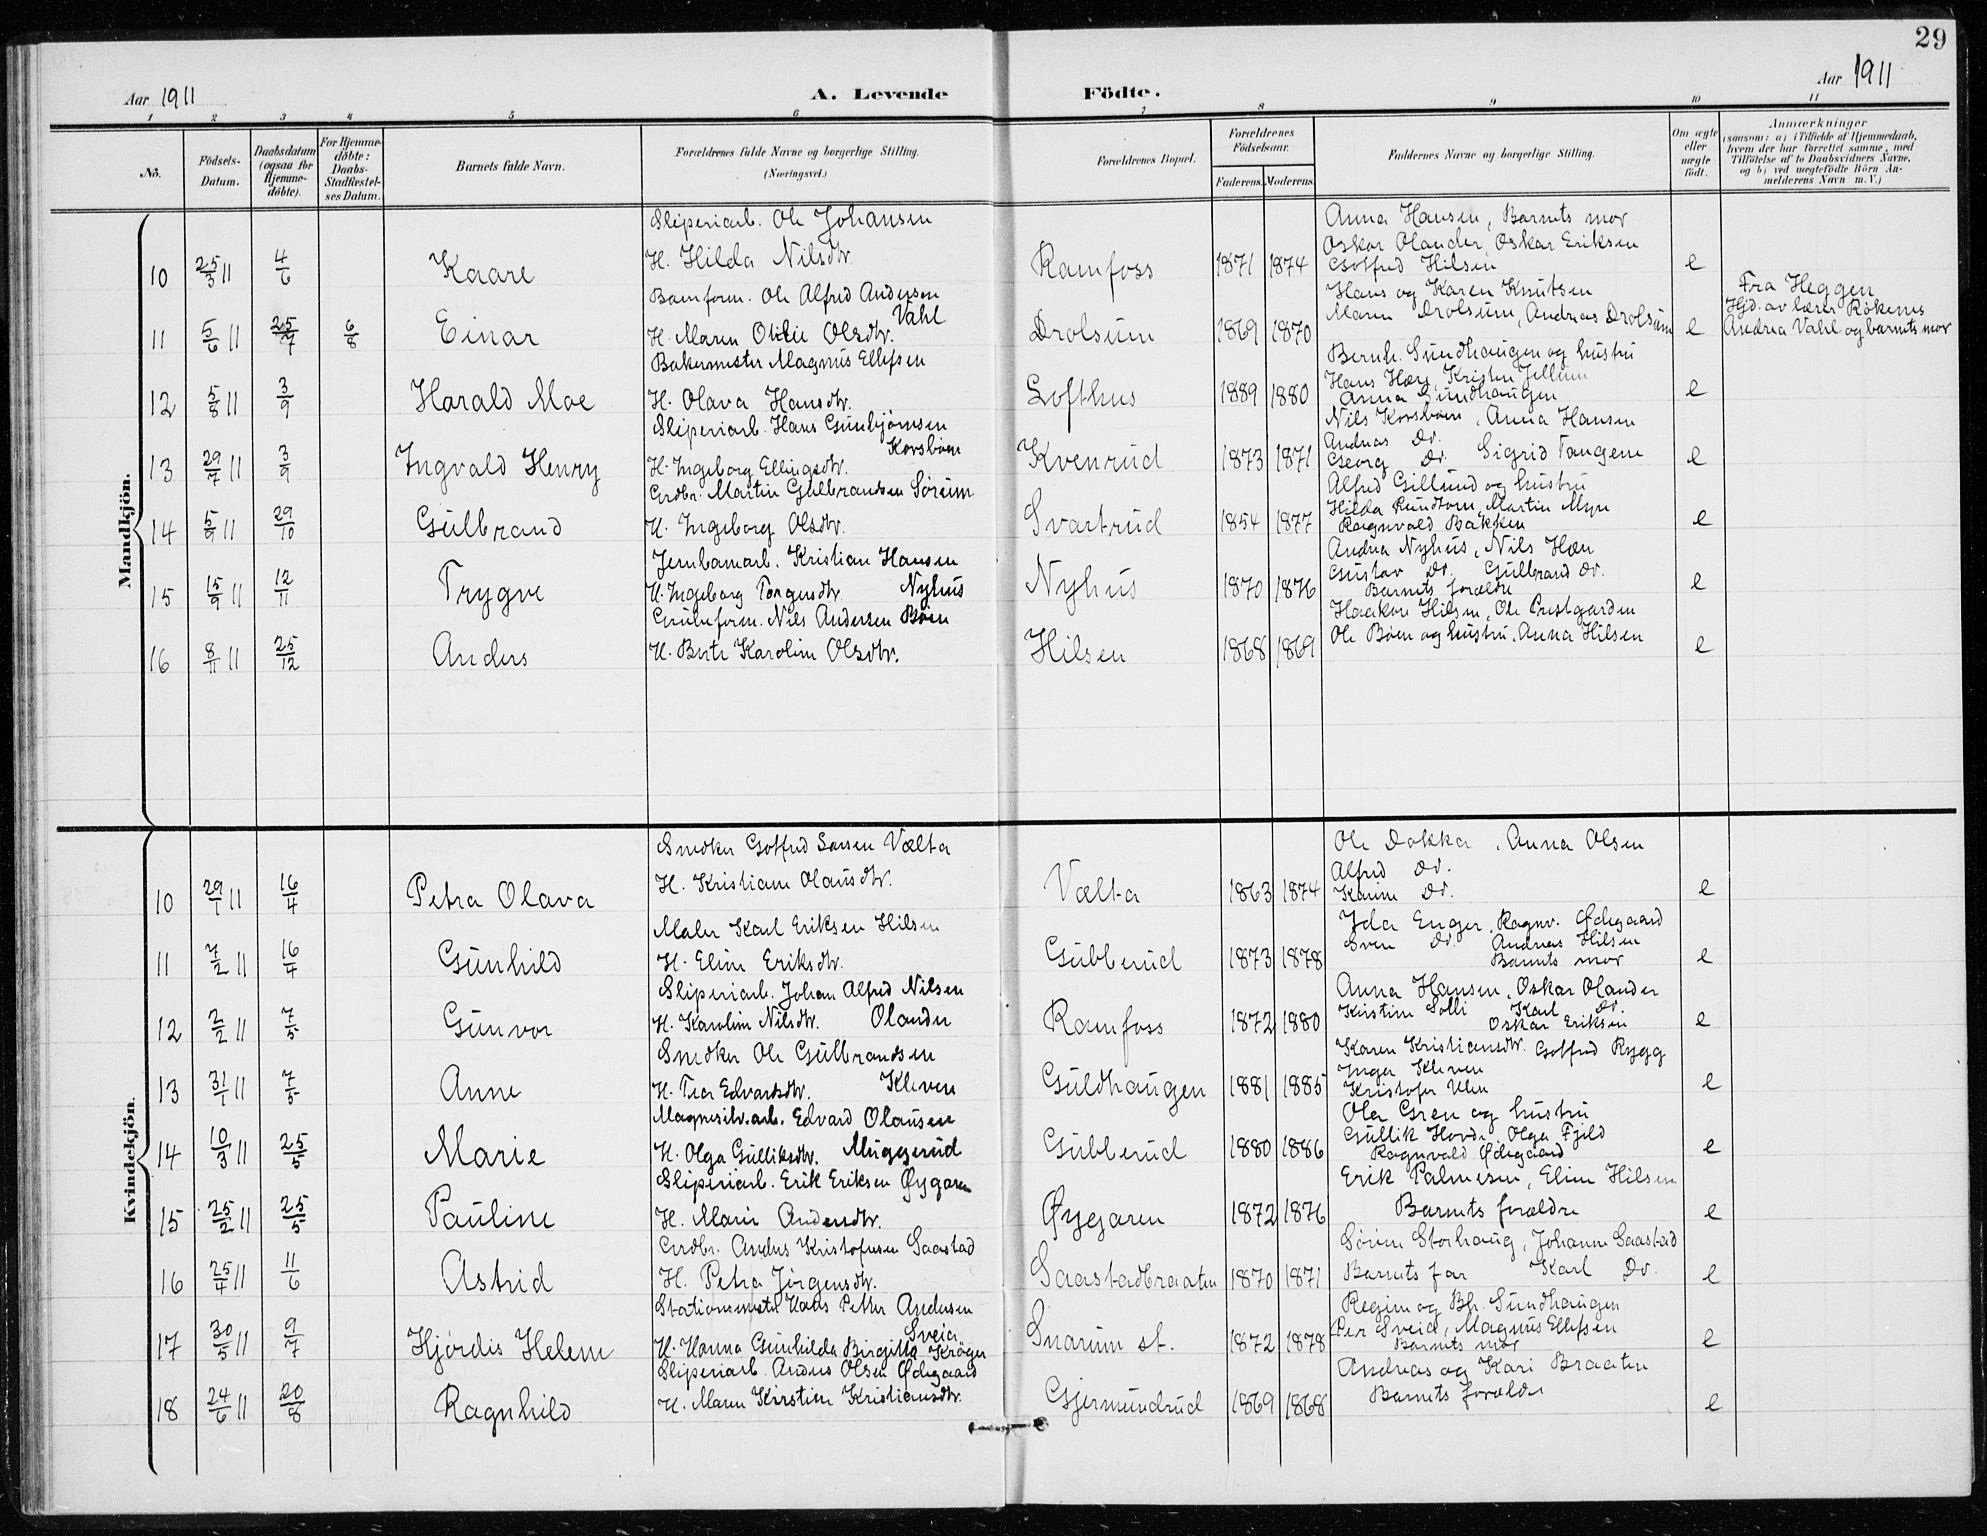 29
Aar 1911
A. Levende Födte.
Aar 1911
1 2 3 4 5 6 7 8 9 10 11
Nô. Födsels-Datum. Daabsdatum (ogsaa for Hjemme-döbte). For Hjemme-döbte: Daabs-Stadfæstel-ses Datum. Barnets fulde Navn. Forældrenes fulde Navne og borgerlige Stilling. (Næringsvei.) Forældrenes Bopæl. Forældrenes Födselsaar. Faderens. Moderens. Faddernes Navne og borgerlige Stilling. Om ægte eller uægte födt. Anmærkninger (saasom: a) i Tilfælde af Hjemmedaab, hvem der har forrettet samme, med Tilföielse af to Daabsvidners Navne, og b) ved uægtefödte Börn An-melderens Navn m. V.)
Mandkjön.
Sliperiarb. Ole Johansen Anna Hansen, Barnets mor
Oskar Olander, Oskar Eriksen
10 25/3 11 4/6 Kaare H. Hilda Nilsdtr. Ramfoss 1871 1874 Gotfred Hilsen e
Hans og Karen Knutsen Fra Heggen
Bomform. Ole Alfred Andersen Vahl Maren Drolsum, Andreas Drolsum Hjd. av lærer Rökenes
11 5/6 11 25/7 6/8 Einar H. Maren Otilie Olsdtr. Drolsum 1869 1870 e Andrea Vahl og barnets mor
Bakermester Magnus Ellefsen Bernh. Sundhaugen og hustru
Hans Hære, Kristen Jellum
12 5/8 11 3/9 Harald Moe H. Olava Hansdtr. Lofthus 1889 1880 Anna Sundhaugen e
Sliperiarb. Hans Gunbjörnsen Korsbøen Nils Korsbøen, Anna Hansen
Andreas Do.
13 29/7 11 3/9 Ingvald Henry H. Ingeborg Ellingsdtr. Kvenrud 1873 1871 Georg Do. Sigrid Tangene e
Grdbr. Martin Gulbrandsen Sörum Alfred Gillund og hustru
Hilda Rundtom, Martin Myre
14 5/9 11 29/10 Gulbrand H. Ingeborg Olsdtr. Svartrud 1854 1877 Ragnvald Bakken e
Jernbanearb. Kristian Hansen Nyhus Andrea Nyhus, Nils Hære
Gustav Do. Gulbrand Do.
15 15/9 11 12/11 Trygve H. Ingeborg Torgersdtr. Nyhus 1870 1876 Barnets forældre e
Grubeform. Nils Andersen Bøen Haakon Hilsen, Ole Prestgarden
Ole Bøen og hustru, Anna Hilsen
16 8/11 11 25/12 Anders H. Berte Karoline Olsdtr. Hilsen 1868 1869 e
Kvindekjön.
Snedker Gotfred Larsen Vælta Ole Dokka, Anna Olsen
Alfred Do.
10 29/1 11 16/4 Petra Olava H. Kristiane Olausdtr. Vælta 1863 1874 Karine Do. e
Maler Karl Eriksen Hilsen Ida Enger, Ragnv. Ødegaard
Sven Do. Andreas Hilsen
11 7/2 11 16/4 Gunhild H. Eline Eriksdtr. Gubberud 1873 1878 Barnets mor e
Sliperiarb. Johan Alfred Nilsen Olander Anna Hansen, Oskar Olander
Kirstine Solli Karl Do.
12 2/2 11 7/5 Gunvor H. Karoline Nilsdtr. Ramfoss 1872 1880 Oskar Eriksen e
Snedker Ole Gulbrandsen Kleven Karen Kristiansdtr. Gotfred Rygg
Inger Kleven
13 31/1 11 7/5 Anne H. Tea Edvardsdtr. Guldhaugen 1881 1885 Kristofer Ulen e
Magnesitv.arb. Edvard Olausen Muggerud Ole Gren og hustru
Gullik Hovde, Olga Fjeld
14 10/3 11 25/5 Marie H. Olga Gulliksdtr. Gubberud 1880 1886 Ragnvald Ødegaard e
Sliperiarb. Erik Eriksen Øygaren Erik Palmesen, Eline Hilsen
15 25/2 11 25/5 Pauline H. Marie Andersdtr. Øygaren 1872 1876 Barnets forældre e
Grdbr. Anders Kristofersen Saastad Sörine Storhaug, Johanne Saastad
16 25/4 11 11/6 Astrid H. Petra Jörgensdtr. Saastadbraaten 1870 1871 Barnets far Karl Do. e
Stationsmester Hans Petter Andersen Sveia Regine og Bh. Sundhaugen
Per Sveia, Magnus Ellefsen
17 30/5 11 9/7 Hjördis Helene H. Hanna Gunhilda Birgitta Kröger Snarum st. 1872 1878 Barnets mor e
Sliperiarb. Anders Olsen Ødegaard Andreas og Kari Braaten
18 24/6 11 20/8 Ragnhild H. Maren Kirstine Kristiansdtr. Gjermundrud 1869 1868 Barnets forældre e